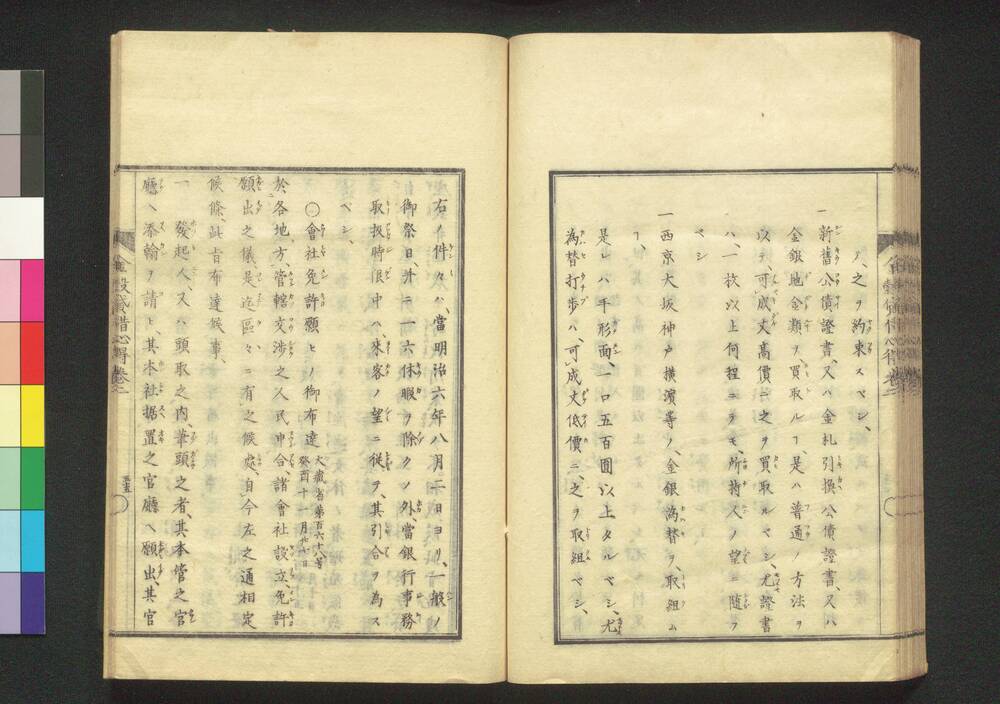 ノ、之ヲ約束スベシ、
一 新舊公債證書、又ハ金札引換公債證書又ハ
金銀地金類ヲ、買取ルヿ、是ハ普通ノ方法ヲ
以テ、可成丈高價ニ之ヲ買取ルベシ、尤證書
ハ、一枚以上何程ニテモ、所持人ノ望ニ随フ
ベシ
一 西京大坂神戸横濱等ノ、金銀為替ヲ、取組ム
ヿ、
是レハ平形面、一口五百圓以上タルベシ、尤
為替打歩ハ、可成丈低價ニ、之ヲ取組ベシ、
右件々ハ、當明治六年八月二日ヨリ、一般ノ
御祭日并ニ一六休暇ヲ除クノ外、當銀行事務
取扱時限中ハ、來客ノ望ニ従ヲ、其引合ヲ為ス
ベシ、
〇會社免許願ヒノ御布達 大藏省第百六十八号 癸酉十一月
於各地方、管轄交渉之人民申合、諸會社設立、免許
願出之儀、是迄區々ニ有之候處、自今左之通相定
候條、此旨布達候事、
一 發起人、又ハ頭取之内、筆頭之者、其本管之官
廳ヘ添翰ヲ請ヒ、其本社据置之官廳ヘ願出、其官